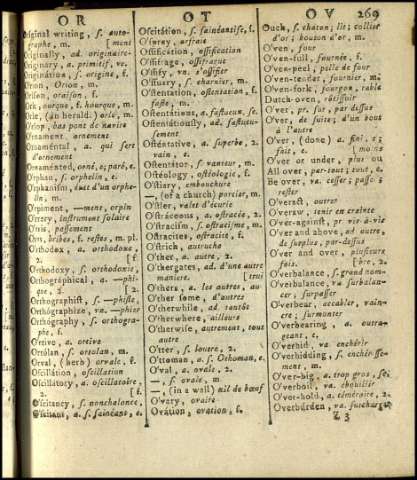 OR
OT
OV 269
Original writing, s. auto-
graphe, m [ment
Originally, ad. originaire-
primitif, ve.
Origination, s. origine, f.
Orion, Orion, m.
Orison, oraison, f.
Ork, hourque, m
(an herald.) orle, m.
pas bone de navire
Ornament, ornement
Ornamental, a. qui sert
d'ornement
Ornamented, orné, e; paré, e.
Orphan, s. orphelin, e.
Orphanism, état d'un orphe-
lin, m.
Orpiment, —ment, orpin
Orrery, instrument solaire
passement
Orts, bribes, f. restes, m. pl.
Orthodox, a. orthodoxe,
2. [f.
Orthodoxy, s. orthodoxie,
Orthographical, a. —phi-
que, 2. [2.
Orthographist, s. —phiste,
Orthographize, va. —phier
Orthography, s. orthogra-
phe, f.
Ortive, a. ortive
Ortolan, s. ortolan, m.
Orval, (herb) orvale, f.
Oscillation, oscillation
Oscillatory, a. oscillatoire,
2. [f.
Oscitancy, s. nonchalance,
Oscitant, a. s. fainéant, e.
Oscitation, s. fainéantise, f.
Osprey, orfraie
Ossification, ossification
Ossifrage, ossifrague
Ossify, va. s'ossifier
Ossuary, s. charnier, m.
Ostentation, ostentation, f.
faste, m.
Ostentatious, a. fastueux, se.
Ostentatiously, ad. fastueu-
sement
Ostentative, a. superbe, 2.
vain, e.
Ostentator, s. vanteur, m.
Osteology, ostéologie, f.
Ostiary, embouchure
—, (of a church) portier, m.
Ostler, valet d'écurie
Ostraceous, a. ostracée, 2.
Ostracism, s. ostracisme, m.
Ostracites, ostracite, f.
Ostrich, autruche
Other, a. autre, 2.
Othergates, ad. d'une autre
maniere
Others, a. les autres, au-
Other some, d'autres
Otherwhile, ad. tantôt
Otherwhere, ailleurs
Otherwise, autrement, tout
autre
Otter, s. loutre, 2.
Ottoman, a. s. Othoman, e.
Oval, a. ovale, 2.
—, s. ovale, m
—, (in a wall) œil de bœuf
Overy, ovaire
Ovation, ovation, f.
Ouch, s. chaton; lit; collier
d'or; bouton d'or, m.
Oven, four
Oven-full, fournée, f.
Oven-peel, pelle de four
Oven-tender, fournier, m.
Oven-fork, fourgon, rable
Dutch-oven, rôtissoir
Over, pr. sur, par dessus
Over, de suite; d'un bout
à l'autre
Over, (done) a. fini, e;
fait, e. [moins
Over or under, plus ou
All over, par-tout; tout, e.
Be over, va. cesser; passé;
rester
Overact, outrer
Overaw, tenir en crainte
Over-against, pr. vis-à-vis
Over and above, ad outre,
de surplus, par-dessus
Over and over, plusieurs
fois. [bre, 2.
Overbalance, s. grand nom-
Overbalance, va surbalan-
cer, surpasser
Overbear, accabler, vain-
cre; surmonter
Overbearing, a. outra-
geant, e.
Overbid, va. enchérir
Overbidding, s. enchérisse-
ment, m.
Over-big, a. trop gros, se.
Overboil, va. ébouillir
Over-bold, a. téméraire, 2.
Overburden, va. surcharger
Z 3